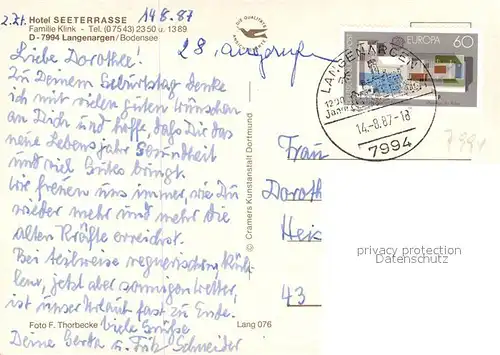 z.Zt. Hotel SEETERRASSE 14 8.87
Familie Klink - Tel. (07543) 2350 u. 1369
D - 7994 Langenargen / Bodensee
Liebe Dorothee!
Zu Deinem Geburtstag denke
ich mit vielen guten Wünschen
an Dich und hoffe, daß Dir das
neue Lebensjahr Gesundheit
und viel Gutes bringt.
Wir freuen uns immer, wie Du
wieder mehr und mehr die
alten Kräfte erreichst.
Bei teilweise regnerischem,
jetzt aber sonnigem Wetter,
ist unser Urlaub fast zu Ende.
Foto F. Thorbecke Viele Grüße Lang 076
Deine Gerda u. Fritz Schneider
DIE QUALITÄTS
© Cramers Kunstanstalt Dortmund
28. angerufen
LANGENARGEN
14.-8.87-18
7994
EUROPA 60
7994
Frau
Doroth
Hei
43
privacy protection
Datenschutz